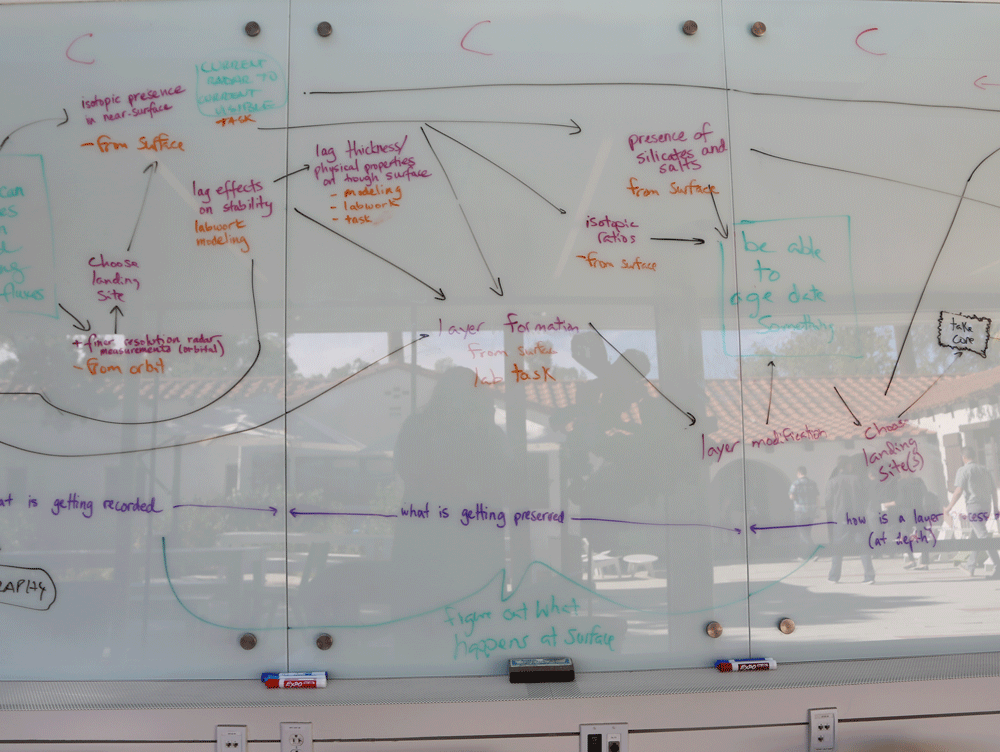 C
C
C
CURRENT
RADAR TO
CURRENT
VISIBLE
TASK
isotopic presence
in near-surface
- from surface
lag effects
on stability
labwork
modeling
lag thickness/
physical properties
on trough surface
- modeling
- labwork
- task
presence of
silicates and
salts
from surface
isotopic
ratios
- from surface
can
fluxes
Choose
landing
site
+ finer resolution radar
measurements (orbital)
- from orbit
layer formation
from surface
lab task
be able
to
age date
something
take
core
layer modification
choose
landing
site(s)
at is getting recorded
what is getting preserved
how is a layer
(at depth)
figure out what
happens at surface
EXPO
EXPO